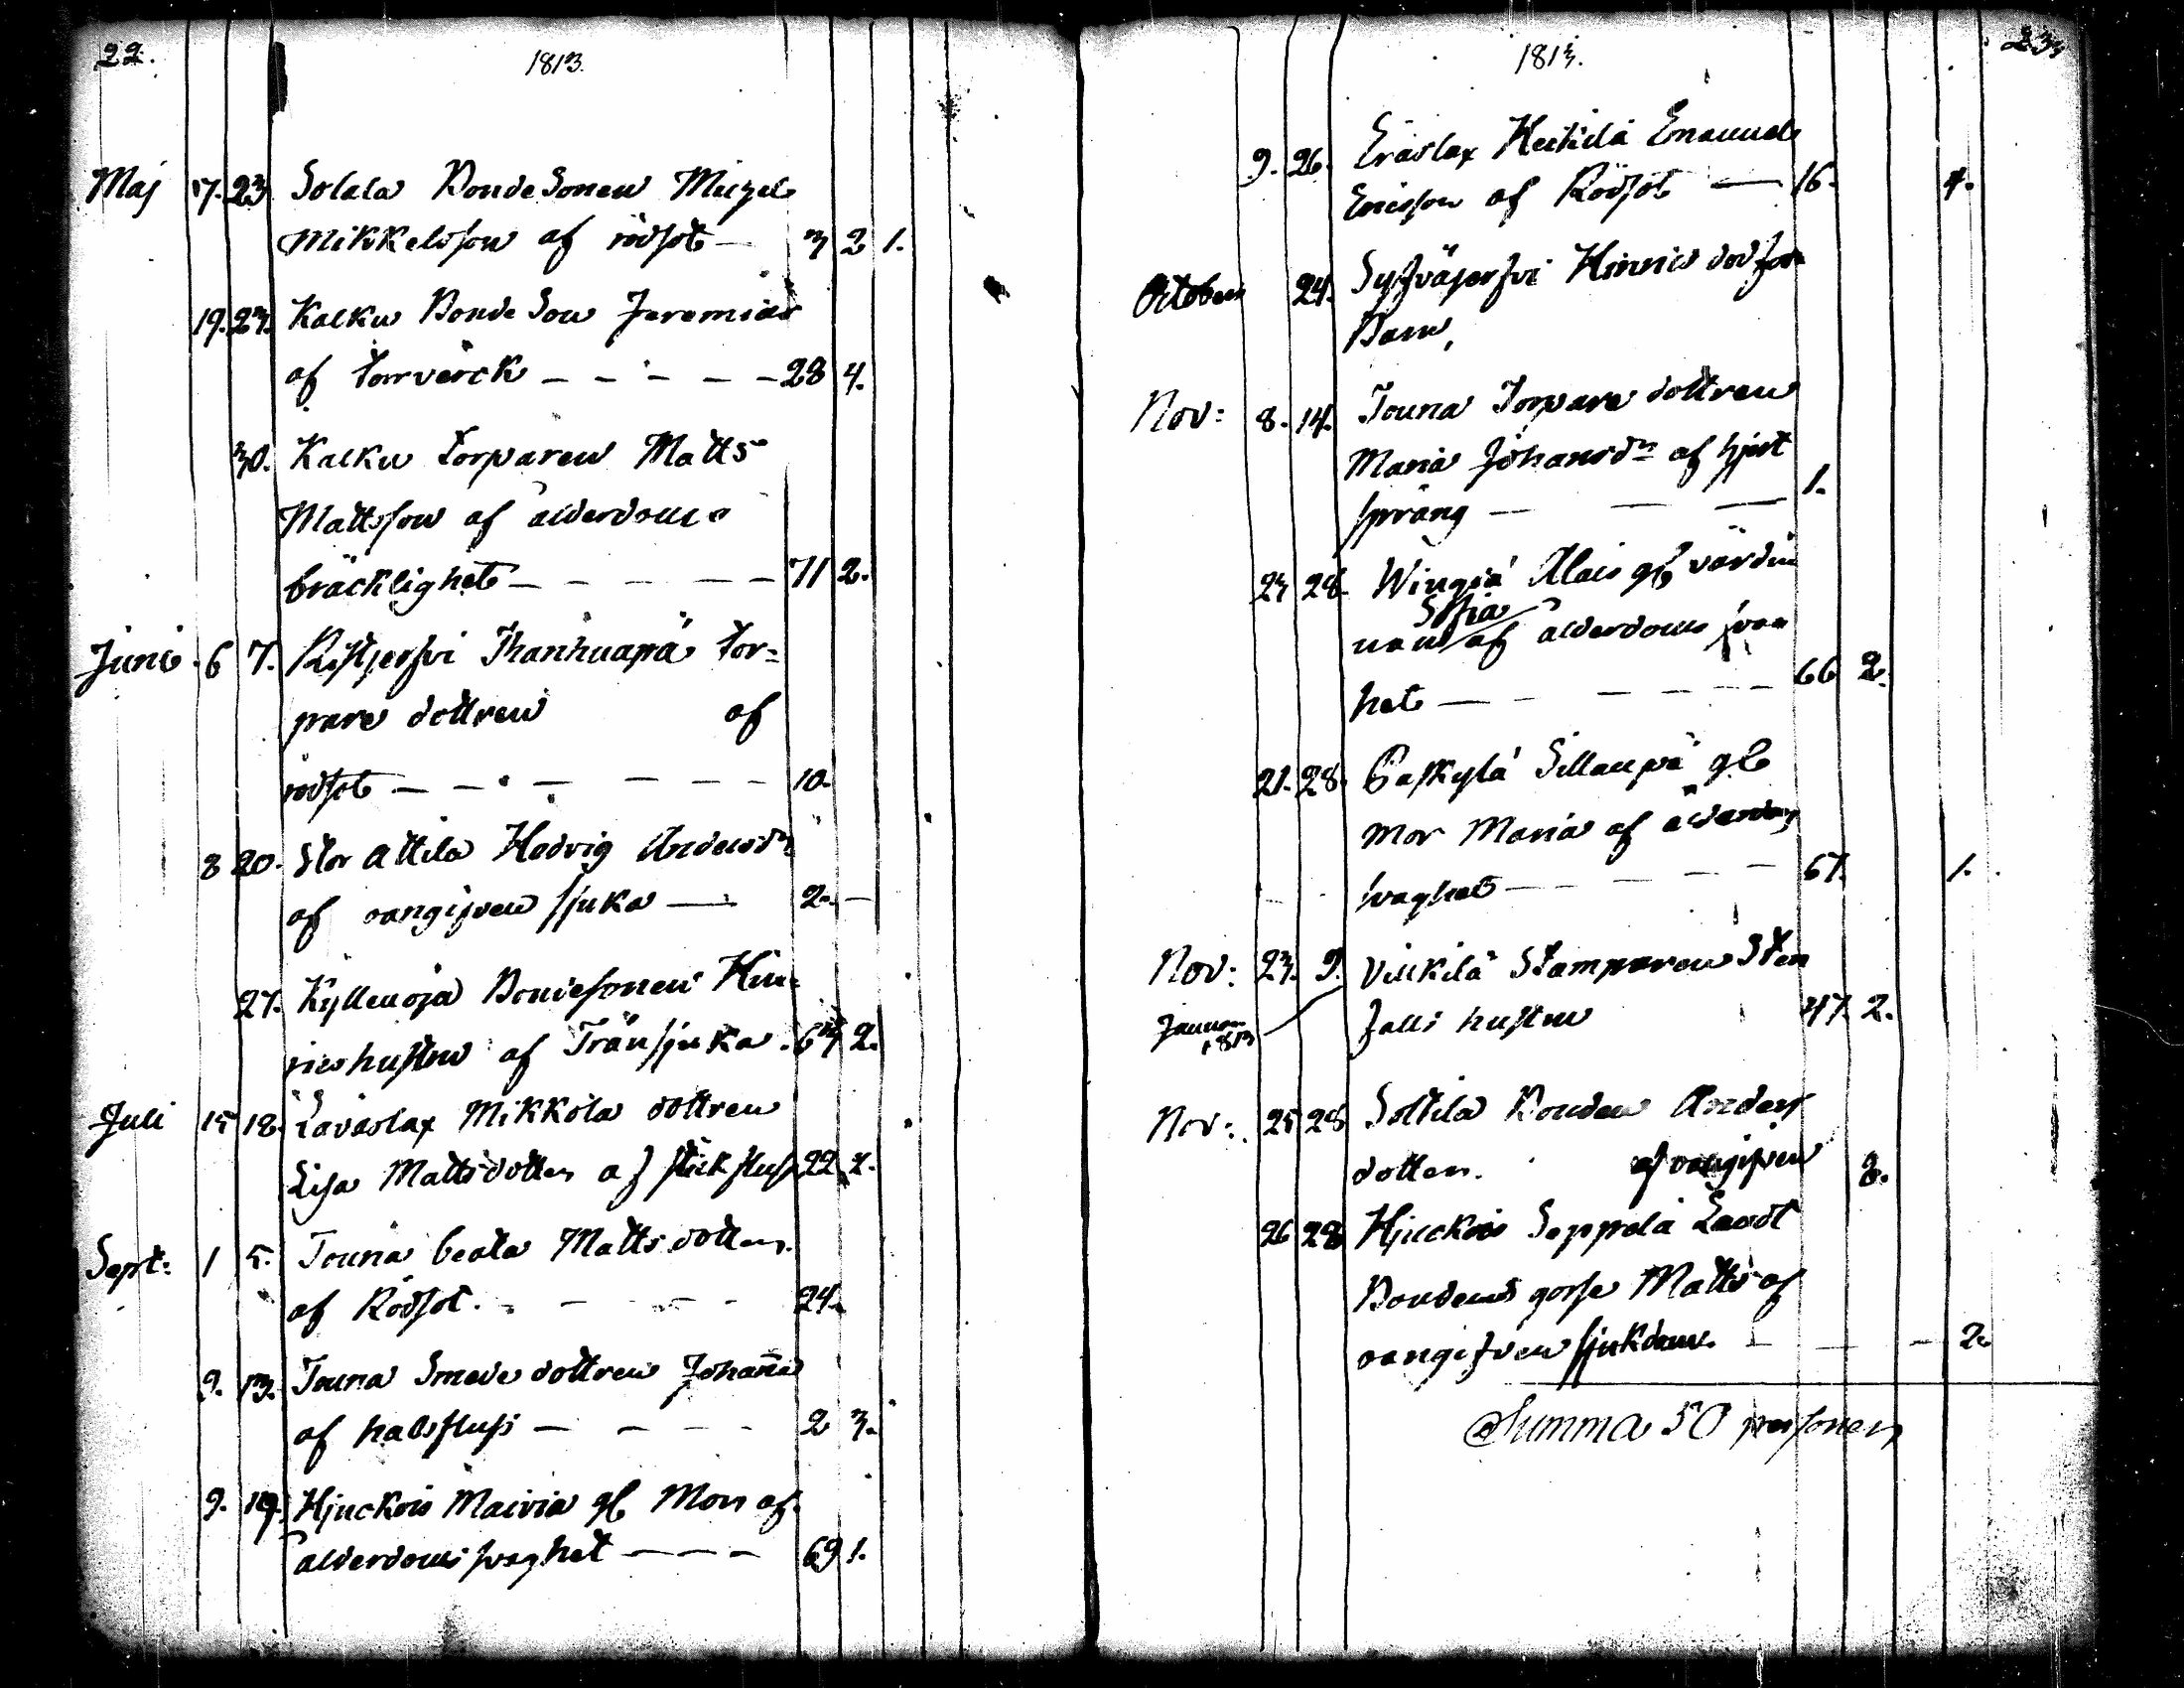 22.
1813.
Maj 17. 23. Solala Bondesonen Michel
Mikkelsson af rödsot — 3 2 1.
19. 23. Kalku Bonde Son Jeremias
af torrverck — — — — — 28 4.
30. Kalku torparen Matts
Mattsson af ålderdoms
bräcklighet — — — — — 71 2.
Junii 6 7. Ristjerfvi Thanhuapä tor=
pare dottren af
rödsot — — — — — — 10.
8 20. Stor Attila Hedvig Andersdr
af oangifven sjuka — 2. —
27. Kyllenoja Bondesonens Hin=
rics hustru af Trånsjuka. 63 2.
Juli 15 18. Saväslax Mikkola dottren
Lisa Mattsdotter af stickfluss 22 2.
Sept: 1 5. Touna beata Mattsdotter
af Rödsot. — — — 24.
9. 13. Touna Smede dottren Johanna
af halsfluss — — — — 2 3.
9. 19. Hjuckois Maivia gl Mor af
ålderdoms svaghet — — — 69 1.
1813.
23
9. 26. Eräslax Heikilä Emanuel
Ericsson af Rödsot — 16. 4.
October 24. Hinrics dödfödt
Barn,
Nov: 8. 14. Touna Torpare dottren
Maria Johansdr af hjert
språng — — — 1.
23 28. Wingiä Alais gl värdin
nan Sofia af ålderdoms svag
het — — — — — — 66 2.
21. 28. Paskylä Sillanpä gl
mor Maria af ålderdoms
svaghet — — — — — 67. 1.
Nov: 23. 9. Vickilä Stamparen Sten
Januari 1813 falls hustru 47 2.
Nov: 25 28 Solkila Bonden Anders
dotter. af oangifven 2.
26 28 Hjuckois Seppelä Landt
Bondens gosse Matts af
oangifven sjukdom. — — — 2.
Summa 50 personer